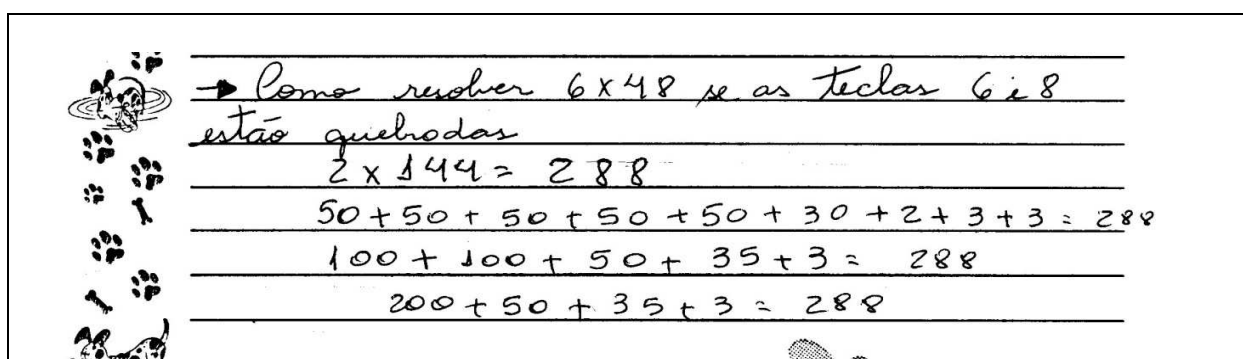 → Como resolver 6 x 48 se as teclas 6 e 8
estão quebrodas
2 x 144 = 288
50 + 50 + 50 + 50 + 50 + 30 + 2 + 3 + 3 = 288
100 + 100 + 50 + 35 + 3 = 288
200 + 50 + 35 + 3 = 288